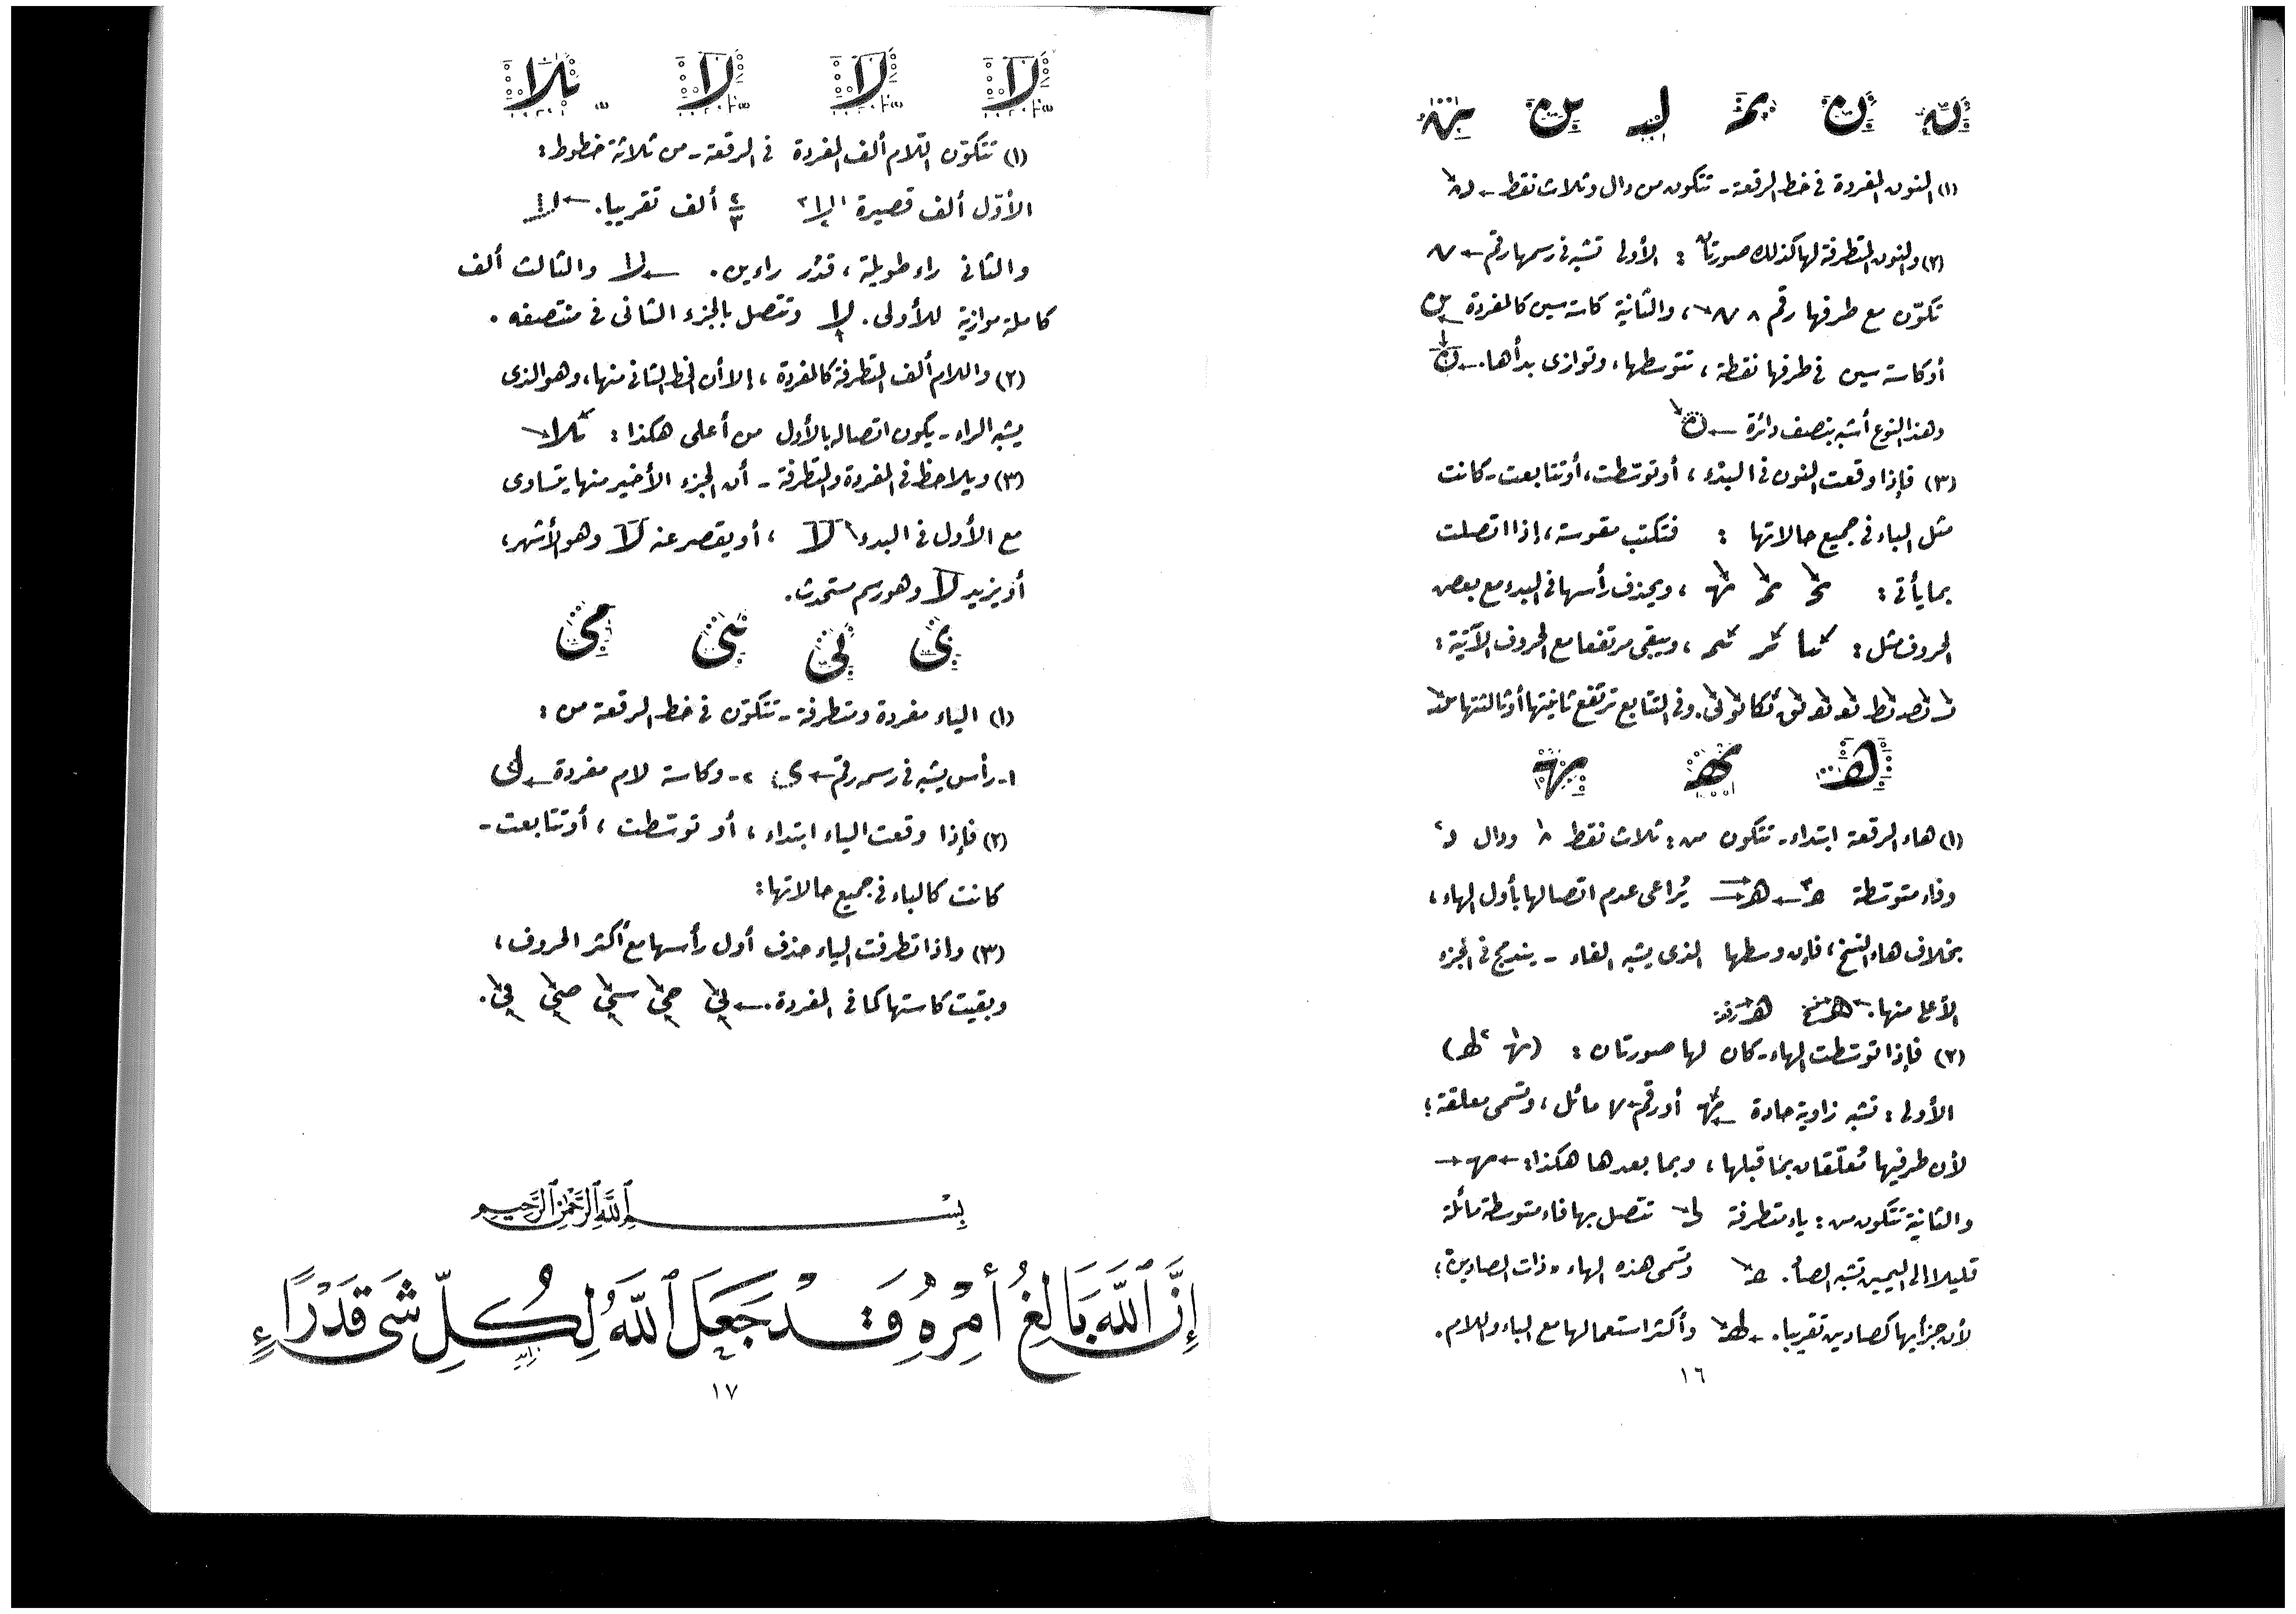 ن ن نمـ لـ ىن نهـ
(١) النون المفردة فى خط الرقعة - تتكون من دال وثلاث نقط ←
(٢) والنون المتطرفة لها كذلك صورتان : الأولى تشبه فى رسمها رقم ← ٧
تكوّن مع طرفها رقم ٨ ، والثانية كاسة سين كالمفردة
أو كاسة سين فى طرفها نقطة ، تتوسطها ، وتوازى بدأها . ← ن
وهذا النوع أشبه بنصف دائرة ← ن
(٣) فإذا وقعت النون فى البدء ، أو توسّطت ، أو تتابعت - كانت
مثل الباء فى جميع حالاتها : فتكتب مقوسة ، إذا اتصلت
بما يأتى : ، ويحذف رأسها فى البدء مع بعض
الحروف مثل : ، ويبقى مرتفعا مع الحروف الآتية :
وفى التتابع ترتفع ثانيتها أو ثالثتها
هـ ـهـ ـهـ
(١) هاء الرقعة ابتداء - تتكون من : ثلاث نقط ودال د
وفاء متوسطة هـ يُراعى عدم اتصالها بأول الهاء ،
بخلاف هاء النسخ ، فإن وسطها الذى يشبه الفاء - يندمج فى الجزء
الأعلى منها . ← هـ نسخ هـ
(٢) فإذا توسّطت الهاء - كان لها صورتان :
الأولى : تشبه زاوية حادة أو رقم ٧ مائل ، وتسمى معلقة ؛
لأن طرفيها مُعلّقان بما قبلها ، وبما بعدها هكذا :
والثانية تتكون من : ياء متطرفة تتصل بها فاء متوسطة مائلة
قليلا الى اليمين تشبه الصاد . وتسمى هذه الهاء « ذات الصادين » ؛
لأن جزأيها كصادين تقريبا . وأكثر استعمالها مع الباء واللام .
١٦
لا لا لا ىلا
(١) تتكوّن اللام ألف المفردة فى الرقعة - من ثلاثة خطوط :
الأوّل ألف قصيرة ألف تقريبا . ←
والثانى راء طويلة ، قدْر راءين . ← والثالث ألف
كاملة موازية للأولى . لا وتتصل بالجزء الثانى فى منتصفه .
(٢) واللام ألف المتطرفة كالمفردة ، إلا أن الخط الثانى منها ، وهو الذى
يشبه الراء - يكون اتصاله بالأول من أعلى هكذا : ىلا
(٣) ويلاحظ فى المفردة والمتطرفة - أن الجزء الأخير منها يتساوى
مع الأول فى البدء لا ، أو يقصر عنه لا وهو الأشهر ،
أو يزيد لا وهو رسم مستحدث .
ى لى ىى مى
(١) الياء مفردة ومتطرفة - تتكوّن فى خط الرقعة من :
١- رأس يشبه فى رسمه رقم ← ٢- وكاسة لام مفردة ←
(٢) فإذا وقعت الياء ابتداء ، أو توسّطت ، أو تتابعت -
كانت كالباء فى جميع حالاتها :
(٣) وإذا تطرفت الياء حذف أول رأسها مع أكثر الحروف ،
وبقيت كاستها كما فى المفردة . ← لى حى سى صى فى .
بِسْمِ ٱللَّهِ ٱلرَّحْمَٰنِ ٱلرَّحِيمِ
إِنَّ ٱللَّهَ بَالِغُ أَمْرِهِ قَدْ جَعَلَ ٱللَّهُ لِكُلِّ شَىْءٍ قَدْرًا
١٧